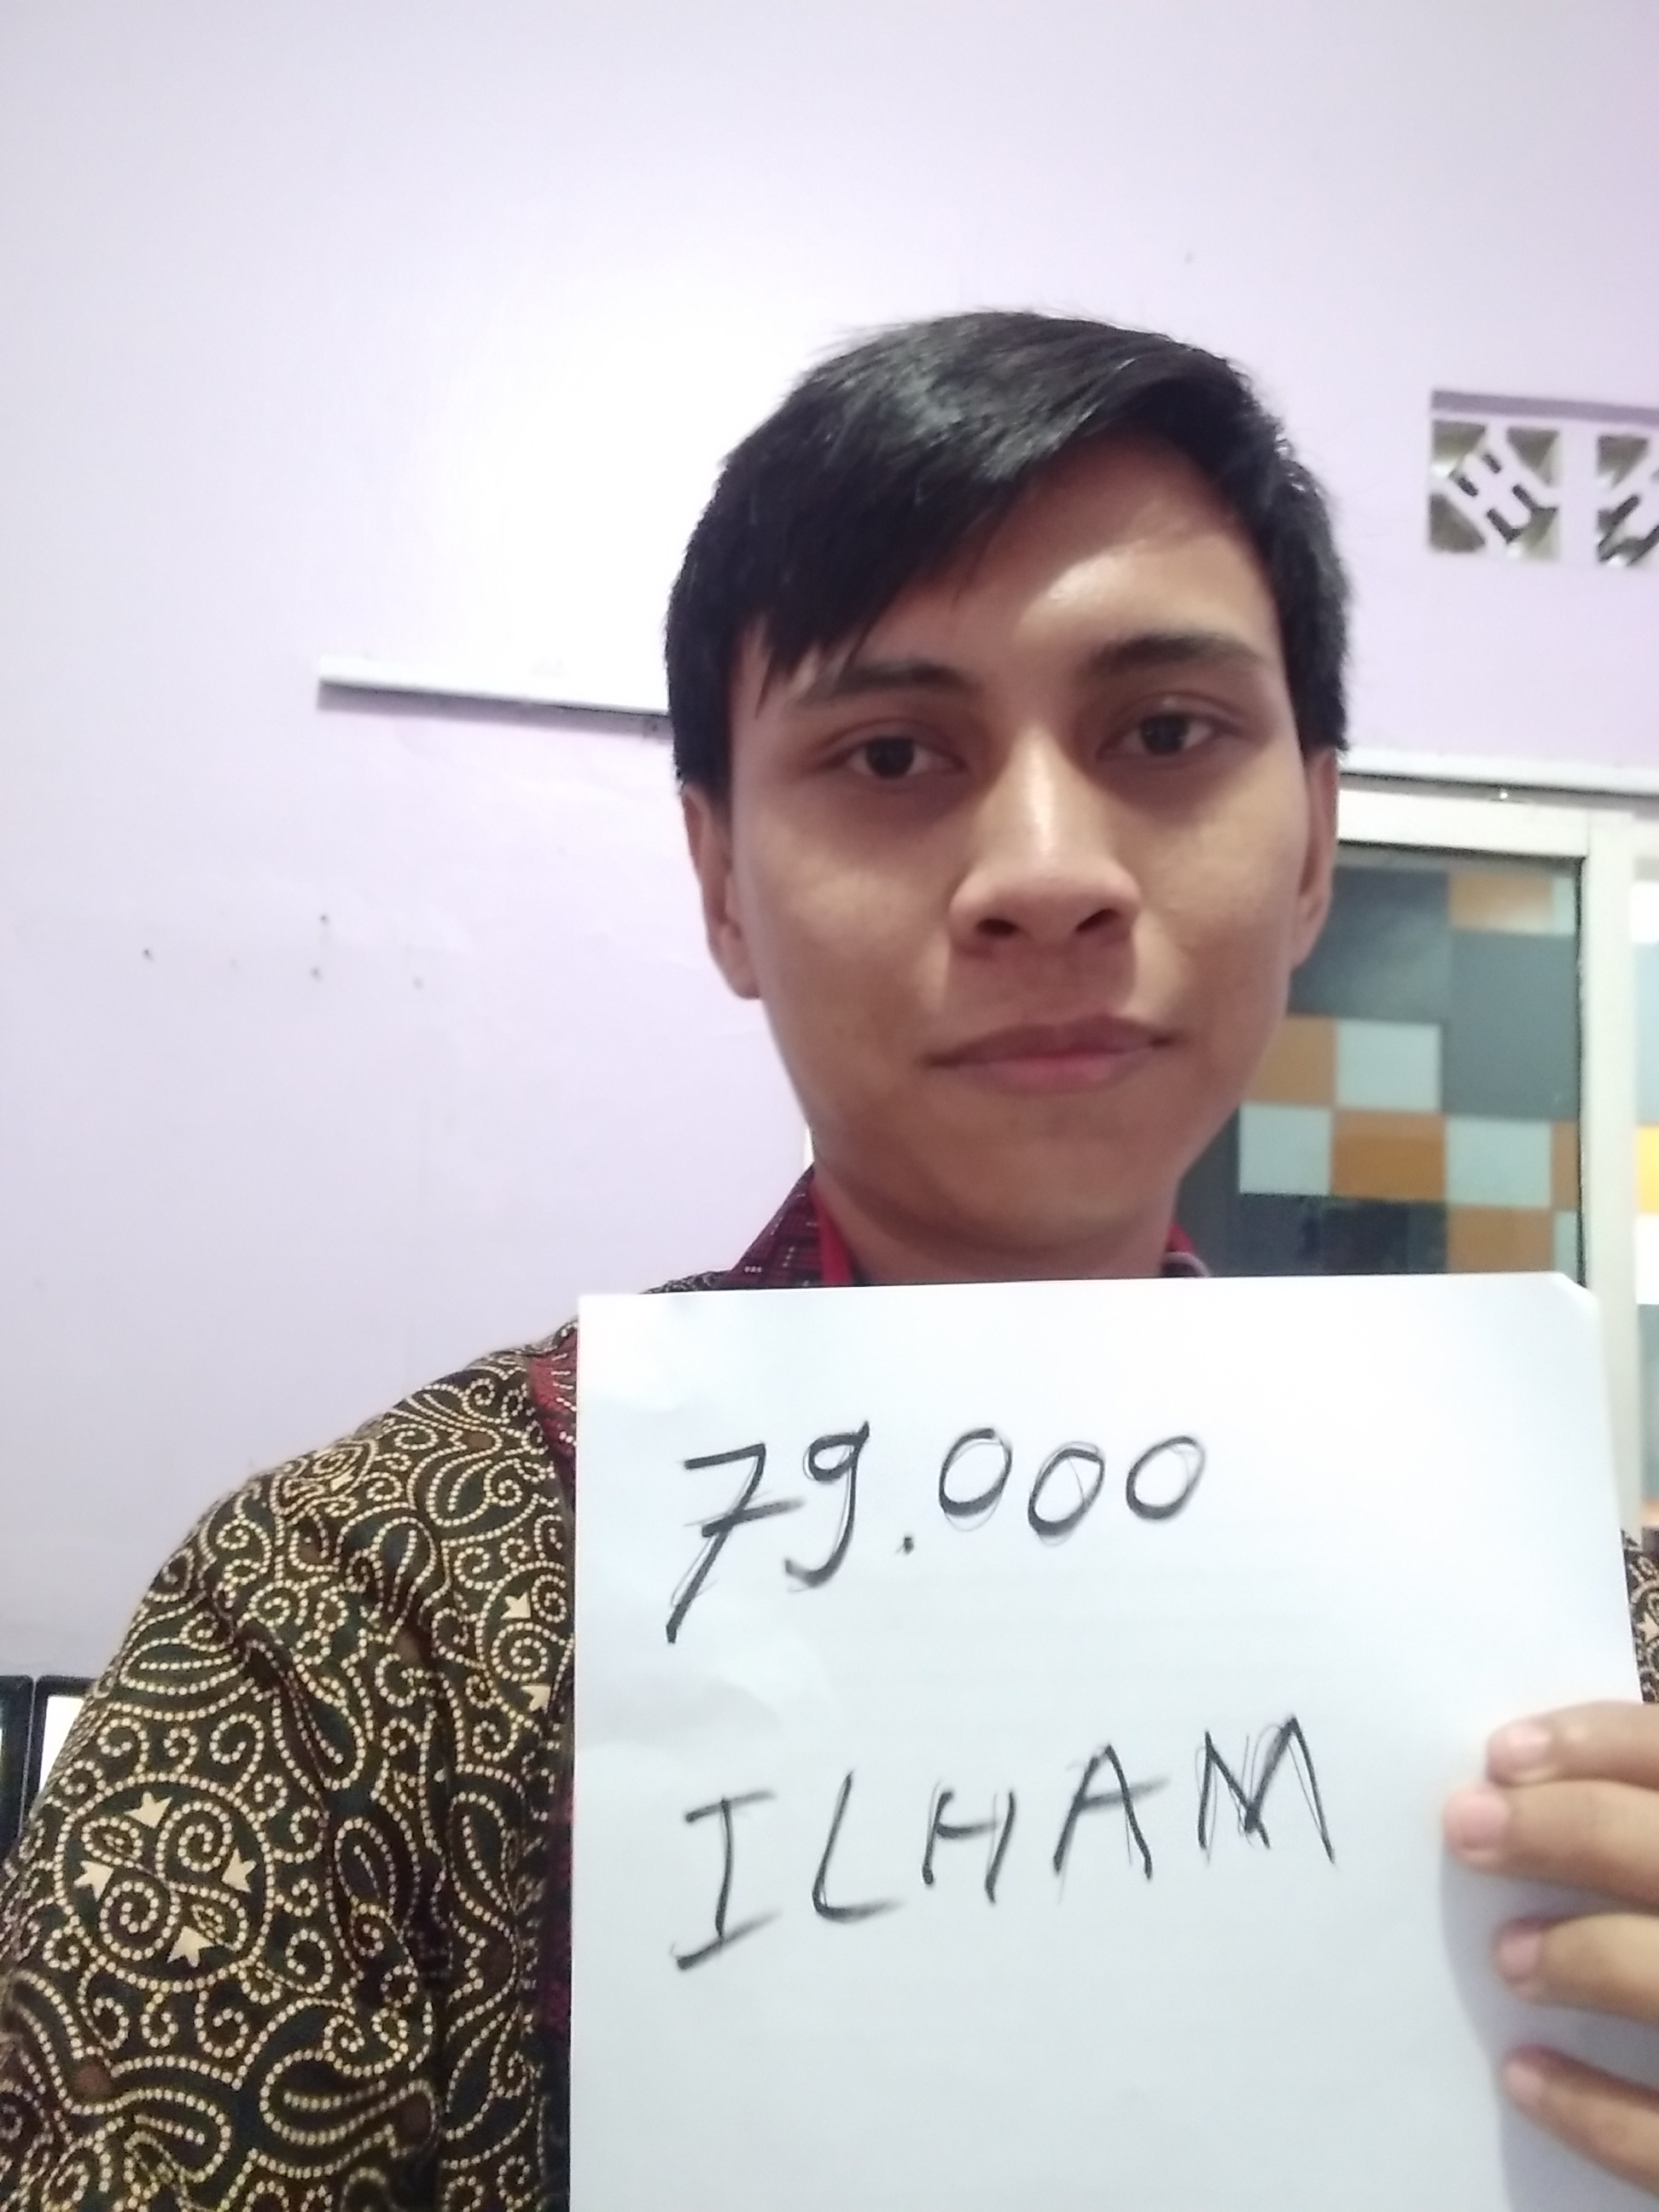 79.000
ILHAM